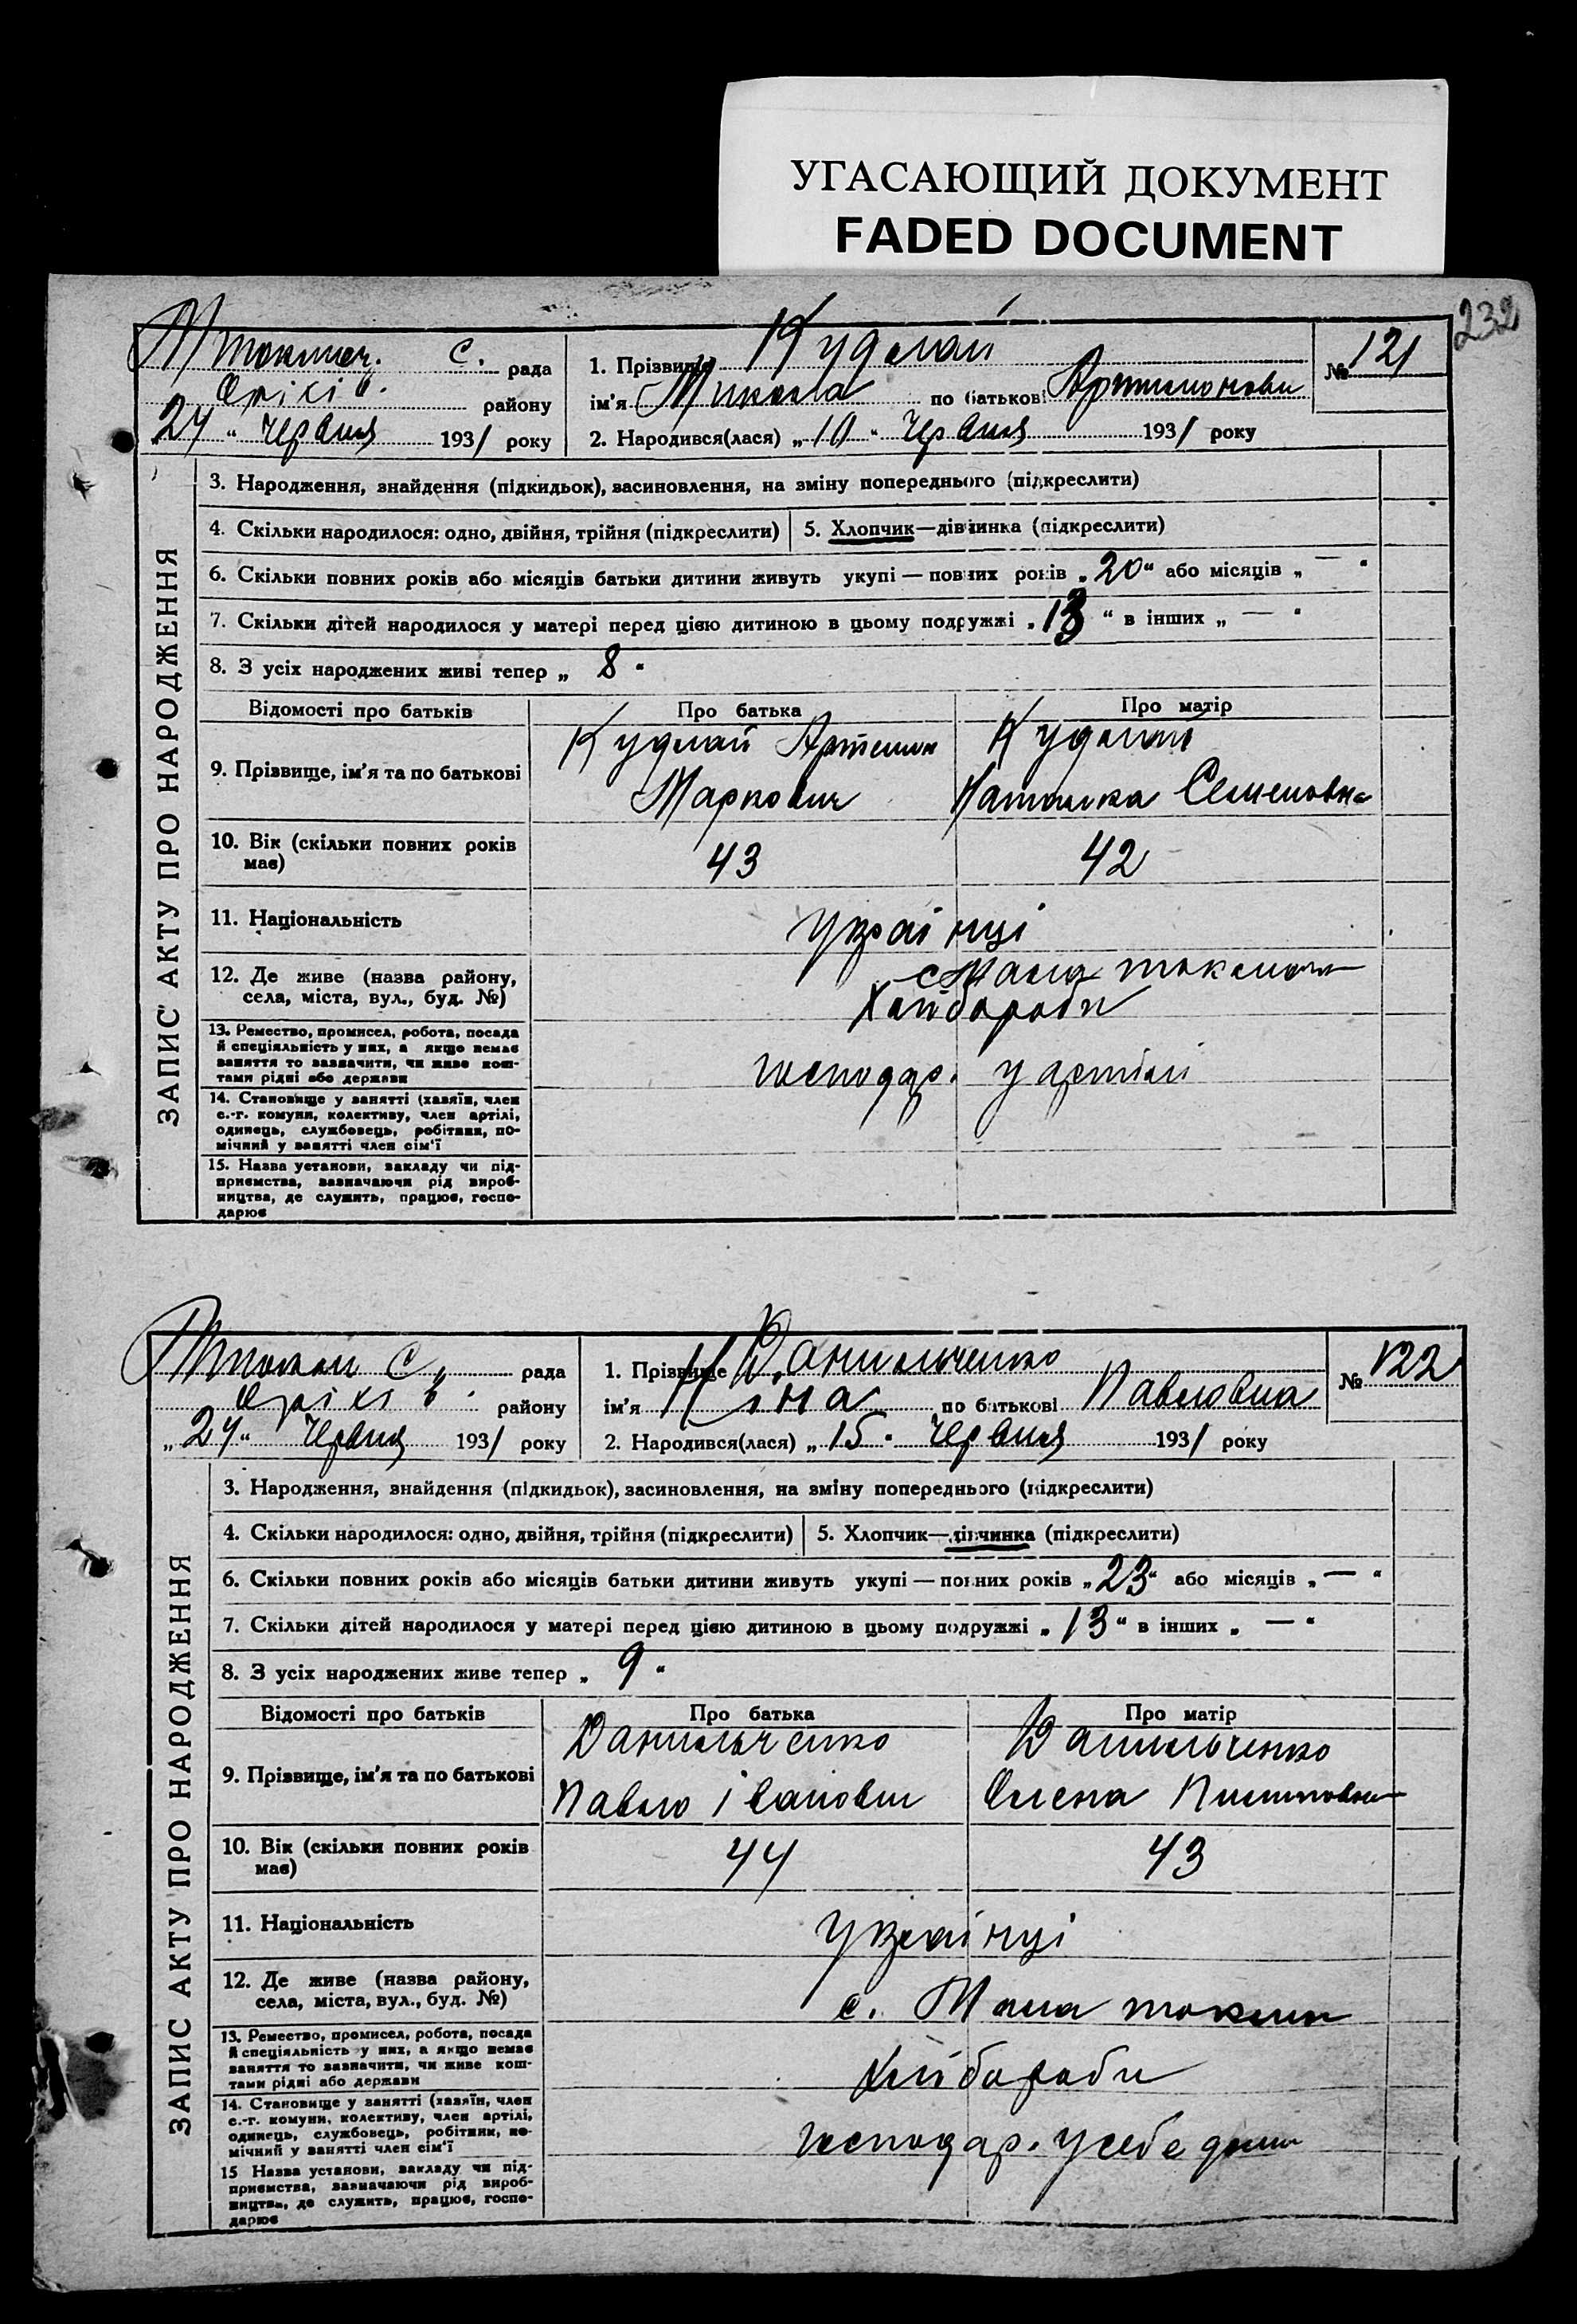 УГАСАЮЩИЙ ДОКУМЕНТ
FADED DOCUMENT
232
Мтокмач. с. рада
Оріхів. району
24 “ червня 1931 року
1. Прізвище Кудлай
ім'я Микола по батькові Артимонови
2. Народився(лася) „ 10 “ червня 1931 року
№ 121
ЗАПИС АКТУ ПРО НАРОДЖЕННЯ
3. Народження, знайдення (підкидьок), засиновлення, на зміну попереднього (підкреслити)
4. Скільки народилося: одно, двійня, трійня (підкреслити) 5. Хлопчик—дівчинка (підкреслити)
6. Скільки повних років або місяців батьки дитини живуть укупі — повних років „ 20 “ або місяців „ — “
7. Скільки дітей народилося у матері перед цією дитиною в цьому подружжі „ 13 “ в інших „ — “
8. З усіх народжених живі тепер „ 8 “
Відомості про батьків Про батька Про матір
9. Прізвище, ім'я та по батькові
Кудлай Артемон
Маркович
Кудлай
Наталка Семеновна
10. Вік (скільки повних років
має)
43 42
11. Національність
Українці
12. Де живе (назва району,
села, міста, вул., буд. №)
с Мала токмачка
13. Ремество, промисел, робота, посада
й спеціяльність у них, а якщо немає
заняття то зазначити, чи живе кош-
тами рідні або держави
Хліборoби
14. Становище у занятті (хазяїн, член
с.-г. комуни, колективу, член артілі,
одинець, службовець, робітник, по-
мічний у занятті член сім'ї
господар. у артілі
15. Назва установи, закладу чи під-
приємства, зазначаючи рід вироб-
ництва, де служить, працює, госпо-
дарює
с. рада
Оріхів. району
„ 24 “ червня 1931 року
1. Прізвище Данильченко
ім'я Ніна по батькові Павловна
2. Народився(лася) „ 15 “ червня 1931 року
№ 122
ЗАПИС АКТУ ПРО НАРОДЖЕННЯ
3. Народження, знайдення (підкидьок), засиновлення, на зміну попереднього (підкреслити)
4. Скільки народилося: одно, двійня, трійня (підкреслити) 5. Хлопчик—дівчинка (підкреслити)
6. Скільки повних років або місяців батьки дитини живуть укупі — повних років „ 23 “ або місяців „ — “
7. Скільки дітей народилося у матері перед цією дитиною в цьому подружжі „ 13 “ в інших „ — “
8. З усіх народжених живе тепер „ 9 “
Відомості про батьків Про батька Про матір
9. Прізвище, ім'я та по батькові
Данильченко
Павло Іванович
Данильченко
Олена
10. Вік (скільки повних років
має)
44 43
11. Національність
Українці
12. Де живе (назва району,
села, міста, вул., буд. №)
с. Мала токмач
13. Ремество, промисел, робота, посада
й спеціяльність у них, а якщо немає
заняття то зазначити, чи живе кош-
тами рідні або держави
Хлібороби
14. Становище у занятті (хазяїн, член
с.-г. комуни, колективу, член артілі,
одинець, службовець, робітник, по-
мічний у занятті член сім'ї
господар. у себе дома
15 Назва установи, закладу чи під-
приємства, зазначаючи рід вироб-
ництва, де служить, працює, госпо-
дарює